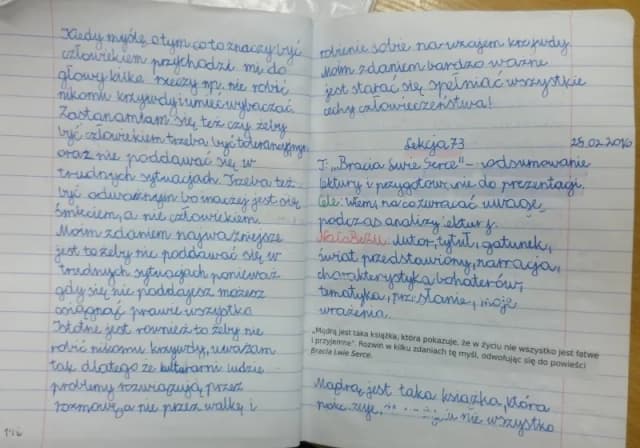 Kiedy myślę o tym co to znaczy być
człowiekiem przychodzi mi do
głowy kilka rzeczy np. nie robić
nikomu krzywdy i umieć wybaczać.
Zastanamłam się też czy żeby
być człowiekiem trzeba być tolerancyjnym
oraz nie poddawać się w
trudnych sytuacjach. Trzeba też
być odważnym bo inaczej jest się
śmieciem, a nie człowiekiem.
Moim zdaniem najważniejsze
jest to żeby nie poddawać się w
trudnych sytuacjach ponieważ
gdy się nie poddajesz możesz
osiągnąć prawie wszystko.
Istotne jest również to żeby nie
robić nikomu krzywdy, uważam
tak dlatego że kulturarni ludzie
problemy rozwiązują przez
rozmowę, a nie przez walkę i
robienie sobie na wzajem krzywdy.
Moim zdaniem bardzo ważne
jest starać się spełniać wszystkie
cechy człowieczeństwa!
Lekcja 73 25.02.2016
T: „Bracia Lwie Serce" – podsumowanie
lektury i przygotowanie do prezentacji.
Cele: Wiem, na co zwracać uwagę
podczas analizy lektury.
NaCoBeZu: Autor, tytuł, gatunek,
świat przedstawiony, narracja,
charakterystyka bohaterów,
tematyka, przesłanie, moje
wrażenia.
„Mądrą jest taka książka, która pokazuje, że w życiu nie wszystko jest łatwe
i przyjemne". Rozwiń w kilku zdaniach tę myśl, odwołując się do powieści
Bracia Lwie Serce.
Mądrą jest taka książka, która
nie wszystko